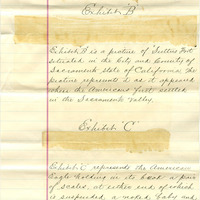 Exhibit "B"
Exhibit "B" is a picture of "Sutters Fort"
situated in the City and County of
Sacramento state of California, the
picture represents it as it appeared
when the Americans first settled
in the Sacramento Valley.
Exhibit "C"
Exhibit "C" represents the American
Eagle holding in its beak a pair
of scales, at either end of which
is suspended, a naked baby and